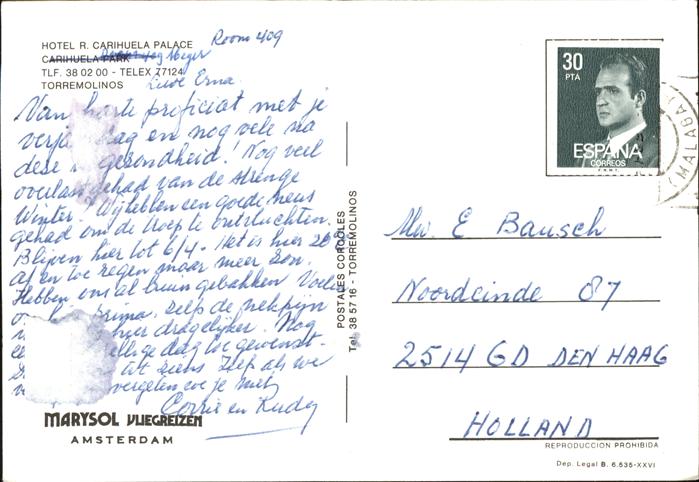 HOTEL R. CARIHUELA PALACE
Room 409
CARIHUELA PARK
TLF. 38 02 00 - TELEX 77124
TORREMOLINOS
Lieve Erna
Van harte proficiat met je
en nog vele na
deze gezondheid! Nog veel
overlast gehad van de strenge
Winter? Wij hebben een goede neus
gehad om de troep te ontvluchten.
Blijven hier tot 6/4. Het is hier 20°
Af en toe regen maar meer zon.
Hebben ons al bruin gebakken. Voelen
prima, zelfs de nekpijn
hier dragelijker. Nog
dag toe gewenst.
tot ziens als we
vergeten we je niet
Corrie en Rudy
MARYSOL VLIEGREIZEN
AMSTERDAM
POSTALES CORCOLES
Tel. 38 57 16 - TORREMOLINOS
30
PTA
ESPAÑA
CORREOS
F.N.M.T.
(MALAGA)
Mw. E Bausch
Noordeinde 87
2514 GD DEN HAAG
HOLLAND
REPRODUCCION PROHIBIDA
Dep. Legal B. 6.535-XXVI